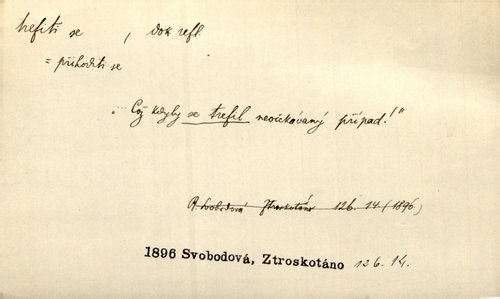 trefiti se , dok. refl.
= přihoditi se
„Což kdyby se trefil neočekávaný případ!“
R. Svobodová Ztroskotáno 126. 14 (1896)
1896 Svobodová, Ztroskotáno 126. 14.